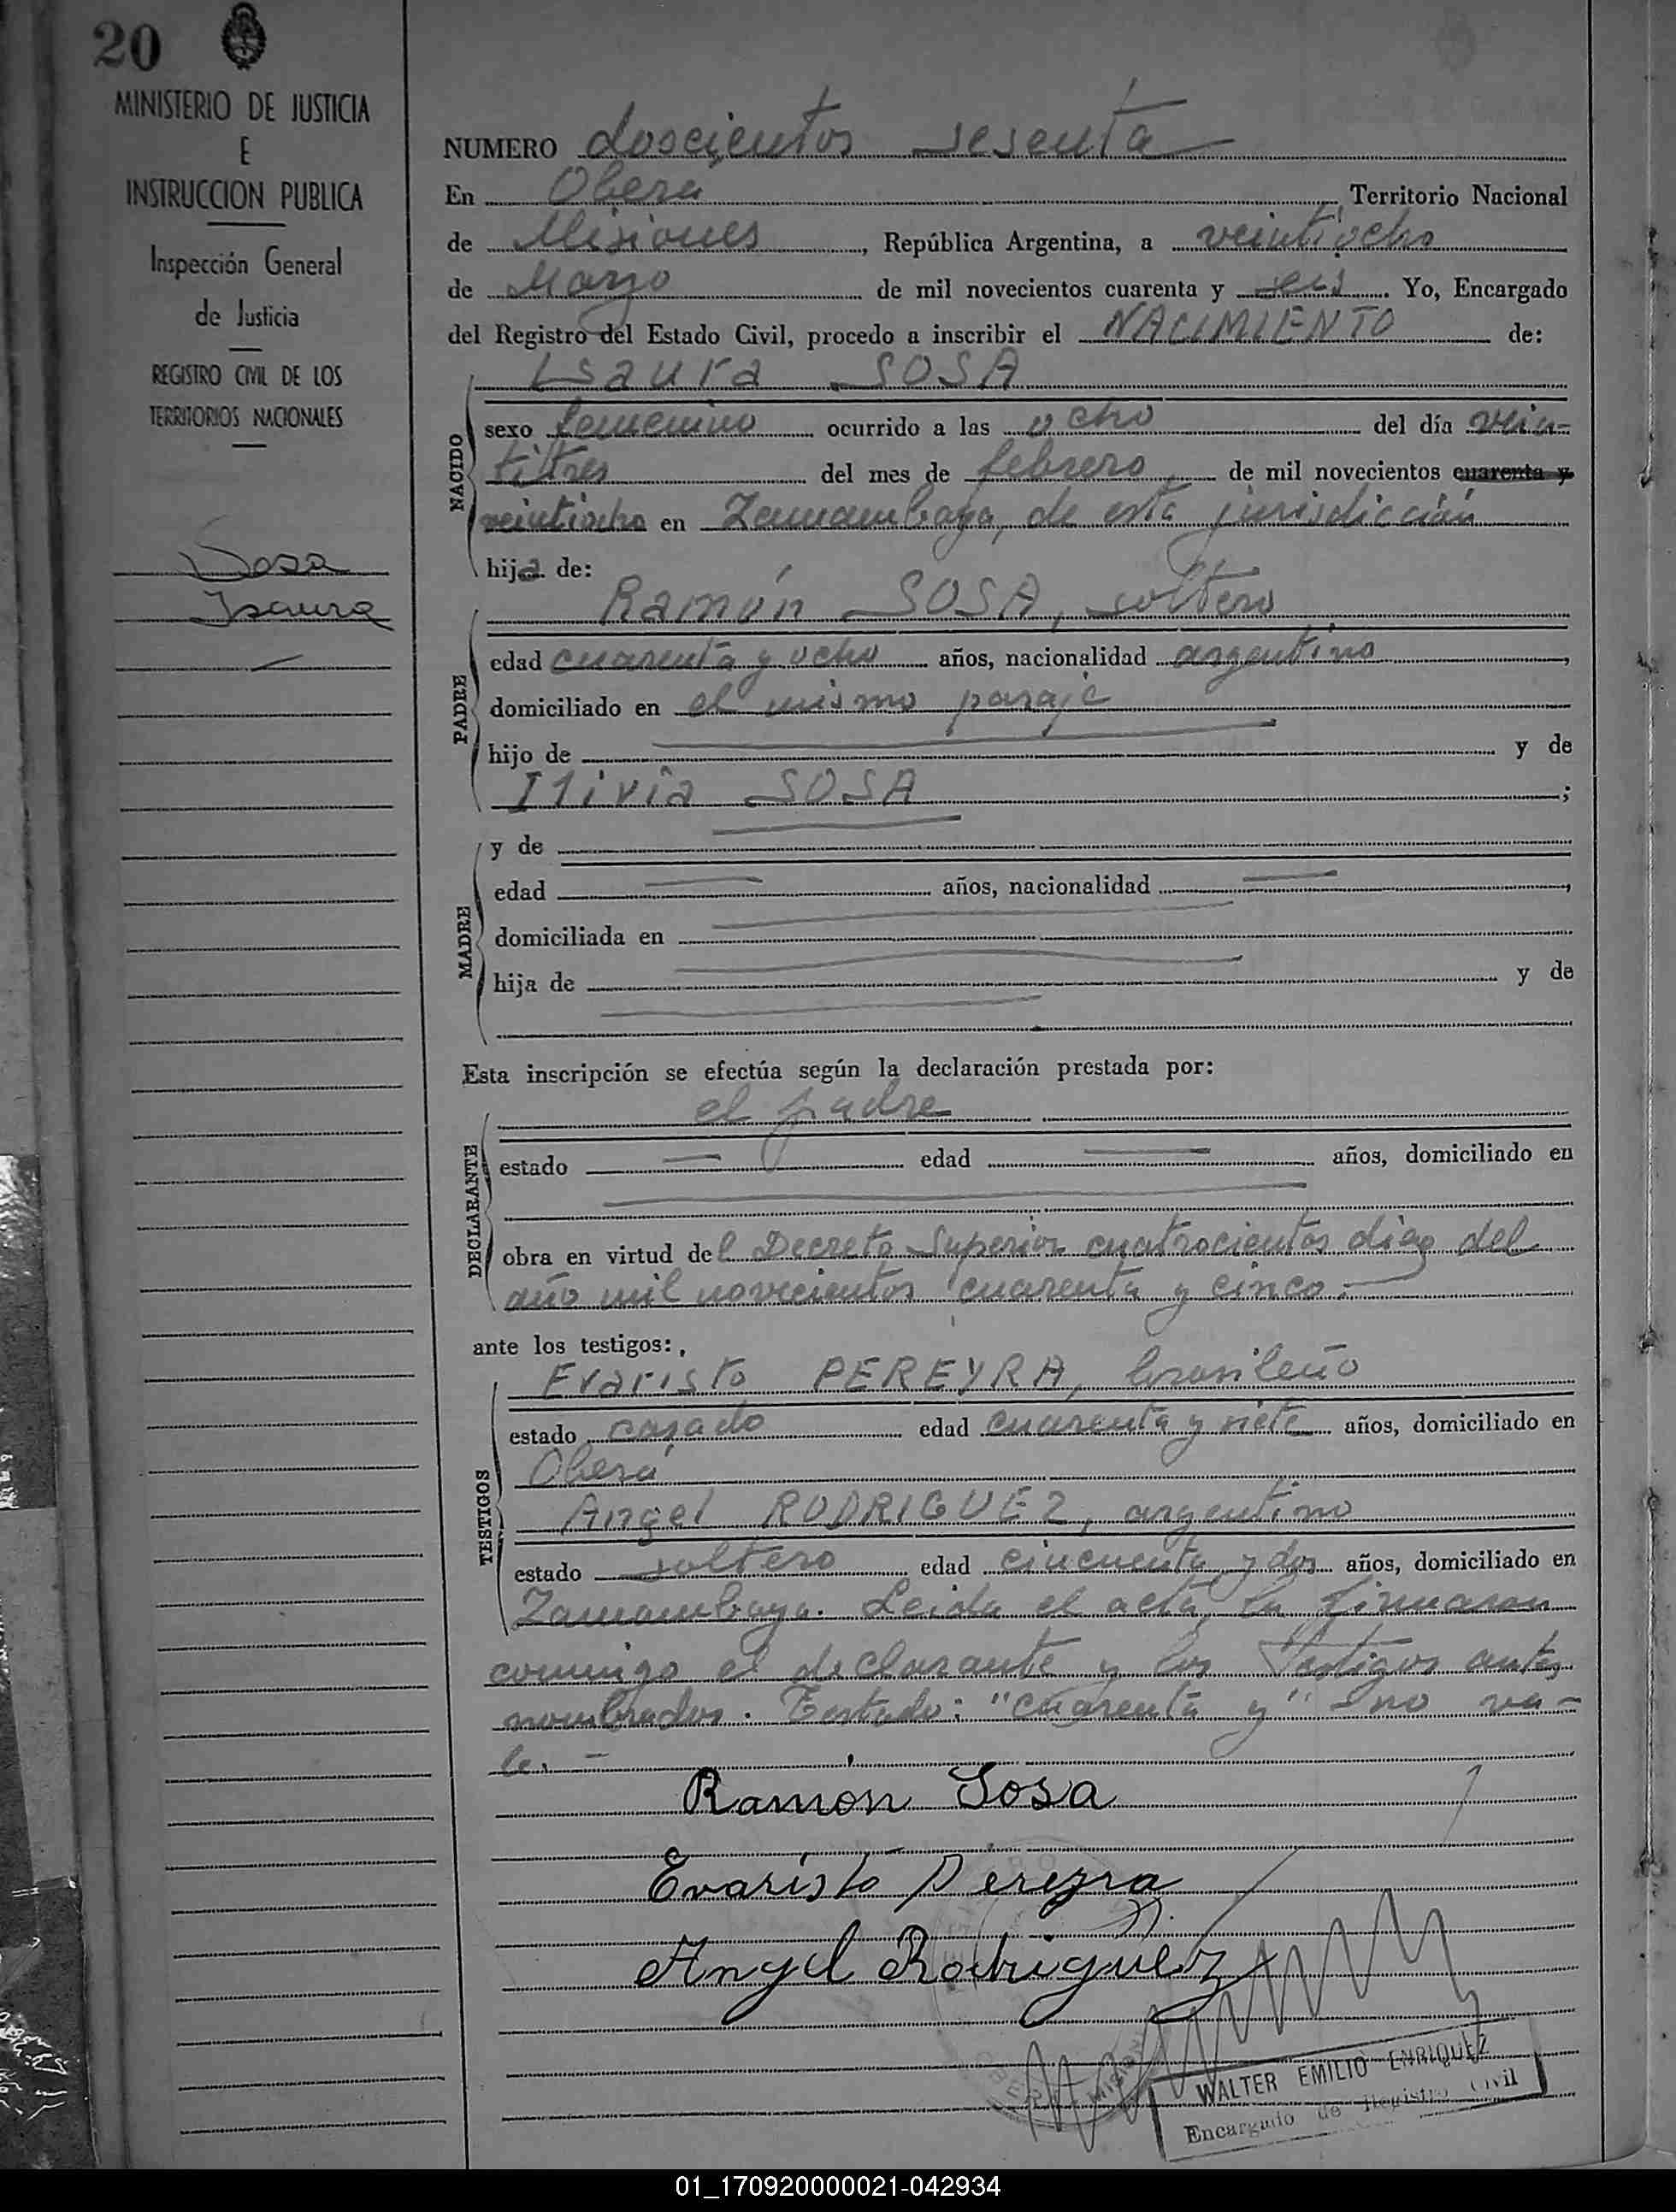 20
MINISTERIO DE JUSTICIA
E
INSTRUCCION PUBLICA
Inspección General
de Justicia
REGISTRO CIVIL DE LOS
TERRITORIOS NACIONALES
Sosa
Isaura
NUMERO doscientos sesenta
En Oberá Territorio Nacional
de Misiones, República Argentina, a veintiocho
de Marzo de mil novecientos cuarenta y seis. Yo, Encargado
del Registro del Estado Civil, procedo a inscribir el NACIMIENTO de:
Isaura SOSA
NACIDO
sexo femenino ocurrido a las ocho del día vein-
titres del mes de febrero de mil novecientos cuarenta y
veintiocho en Zamambaya, de esta jurisdicción
hija de:
Ramón SOSA, soltero
PADRE
edad cuarenta y ocho años, nacionalidad argentino,
domiciliado en el mismo paraje
hijo de y de
Ilivia SOSA;
MADRE
y de
edad años, nacionalidad,
domiciliada en
hija de y de
Esta inscripción se efectúa según la declaración prestada por:
el padre
DECLARANTE
estado edad años, domiciliado en
obra en virtud del Decreto Superior cuatrocientos diez del
año mil novecientos cuarenta y cinco.
ante los testigos:
Evaristo PEREYRA, brasileño
TESTIGOS
estado casado edad cuarenta y siete años, domiciliado en
Oberá
Angel RODRIGUEZ, argentino
estado soltero edad cincuenta y dos años, domiciliado en
Zamambaya. Leida el acta, la firmaron
conmigo el declarante y los Testigos antes
nombrados. Testado: "cuarenta y" no va-
le. -
Ramón Sosa
Evaristo Pereyra
Angel Rodriguez
WALTER EMILIO ENRIQUEZ
Encargado de Registro Civil
01_170920000021-042934